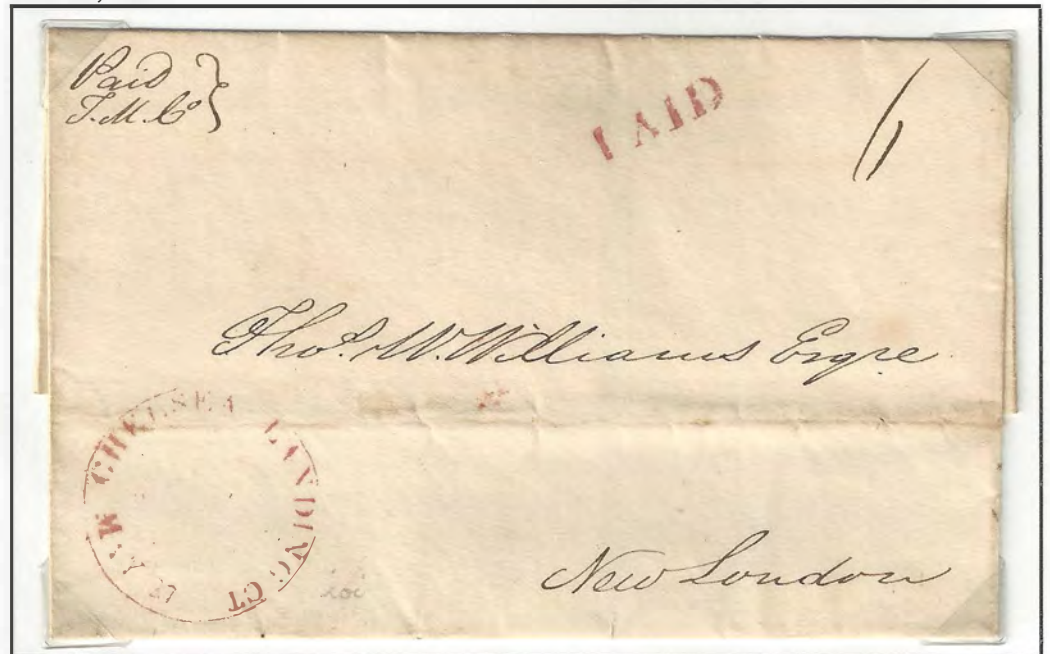 Paid
T.M.Co
PAID
6
Thos. W. Williams Esqre
CHELSEA LANDING CT
New London